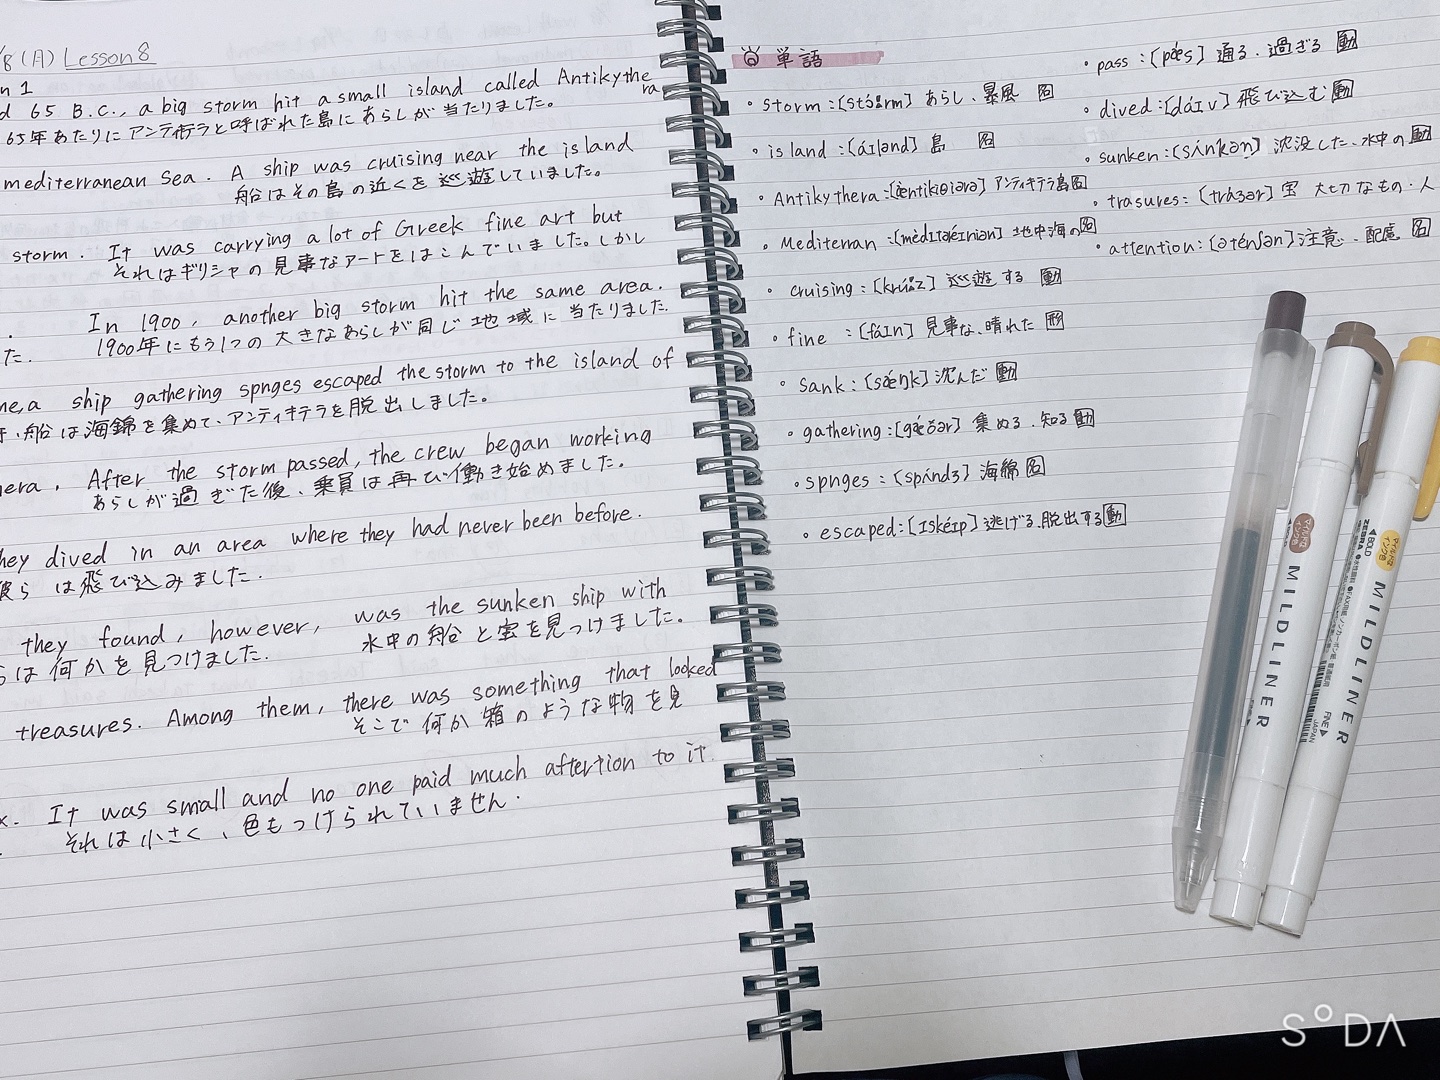 /8 (月) Lesson 8
n 1
d 65 B.C., a big storm hit a small island called Antikythe
ra
65年あたりにアンティキテラと呼ばれた島にあらしが当たりました。
mediterranean Sea. A ship was cruising near the island
船はその島の近くを巡遊していました。
storm. It was carrying a lot of Greek fine art but
それはギリシャの見事なアートをはこんでいました。しかし
. In 1900, another big storm hit the same area.
た. 1900年にもう1つの大きなあらしが同じ地域に当たりました.
me, a ship gathering spnges escaped the storm to the island of
、船は海錦を集めて、アンティキテラを脱出しました。
hera. After the storm passed, the crew began working
あらしが過ぎた後、乗員は再び働き始めました。
hey dived in an area where they had never been before.
彼らは飛び込みました.
they found, however, was the sunken ship with
らは何かを見つけました. 水中の船と宝を見つけました。
treasures. Among them, there was something that looked
そこで何か箱のような物を見
x. It was small and no one paid much aftertion to it.
. それは小さく、色もつけられていません.
単語
・storm:[stɔ́ərm] あらし、暴風 名
・island:[áɪlənd] 島 名
・Antikythera:[æ̀ntikiθíərə] アンティキテラ島名
・Mediterran:[mèdɪtəréɪniən] 地中海の名
・cruising:[krúːz] 巡遊する 動
・fine :[fáɪn] 見事な、晴れた 形
・sank:[sǽŋk] 沈んだ 動
・gathering:[gǽðər] 集める、知る 動
・spnges:[spʌ́ndʒ] 海綿 名
・escaped:[ɪskéɪp] 逃げる、脱出する動
・pass:[pǽs] 通る、過ぎる 動
・dived:[dáɪv] 飛び込む動
・sunken:[sʌ́nkən] 沈没した、水中の動
・trasures:[tréʒər] 宝 大切なもの・人
・attention:[əténʃən] 注意、配慮 名
マイルドなインク色
MILDLINER
ZEBRA
◀BOLD
マイルドなインク色
MILDLINER
FINE▶
JAPAN
SODA